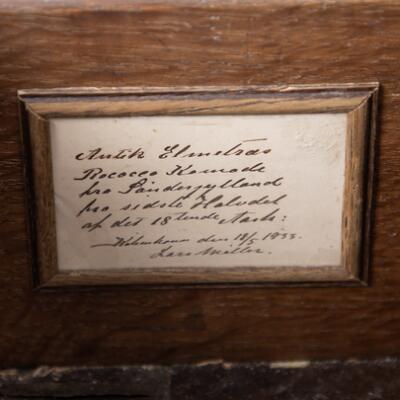 Antik Elmetræs
Rococco Komode
fra Sønderjylland
fra sidste Halvdel
af det 18 tende Aarh:
København den 18/5 1933.
Lars Møller.